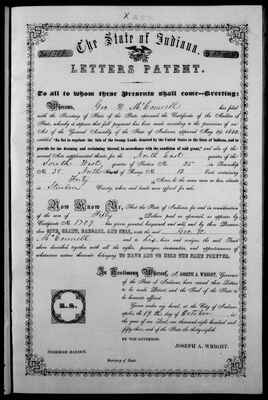 The State of Indiana.
LETTERS PATENT.
To all to whom these Presents shall come—Greeting:
Whereas, Geo W McConnell has filed
with the Secretary of State of this State approved the Certificate of the Auditor of
State, whereby it appears that full payment has been made according to the provisions of an
Act of the General Assembly of the State of Indiana approved May 29, 1852,
entitled "An Act to regulate the Sale of the Swamp Lands donated by the United States to the State of Indiana, and to
provide for the draining and reclaiming thereof, in accordance with the condition of said grant," and also of the
several Acts supplemental thereto for the North East quarter of the
South West, quarter of Section No. 35 in Township
No. 38 North of Range No. 12 East containing
Forty Acres, to the same more or less, situate
in Steuben County, when sold under said offer for sale.
Now Know Ye, That the State of Indiana for and in consideration
of the sum of Fifty Dollars paid as aforesaid, as appears by
Certificate No. has given granted bargained and sold, and by these Presents
does GIVE, GRANT, BARGAIN, AND SELL, unto the said Geo. W.
McConnell and to heirs and assigns the said Tract
above described together with all the rights, privileges, immunities, and appurtenances of
whatsoever nature thereunto belonging TO HAVE AND TO HOLD THE SAME FOREVER.
In Testimony Whereof, I, JOSEPH A. WRIGHT, Governor
of the State of Indiana, have caused these Letters
to be made Patent and the Seal of the State to
be hereunto affixed.
Given under my hand, at the City of Indianapolis,
the 19th day of October in
the year of our Lord, one thousand eight hundred and
fifty three, and of the State the thirty eighth.
BY THE GOVERNOR:
JOSEPH A. WRIGHT.
Secretary of State.